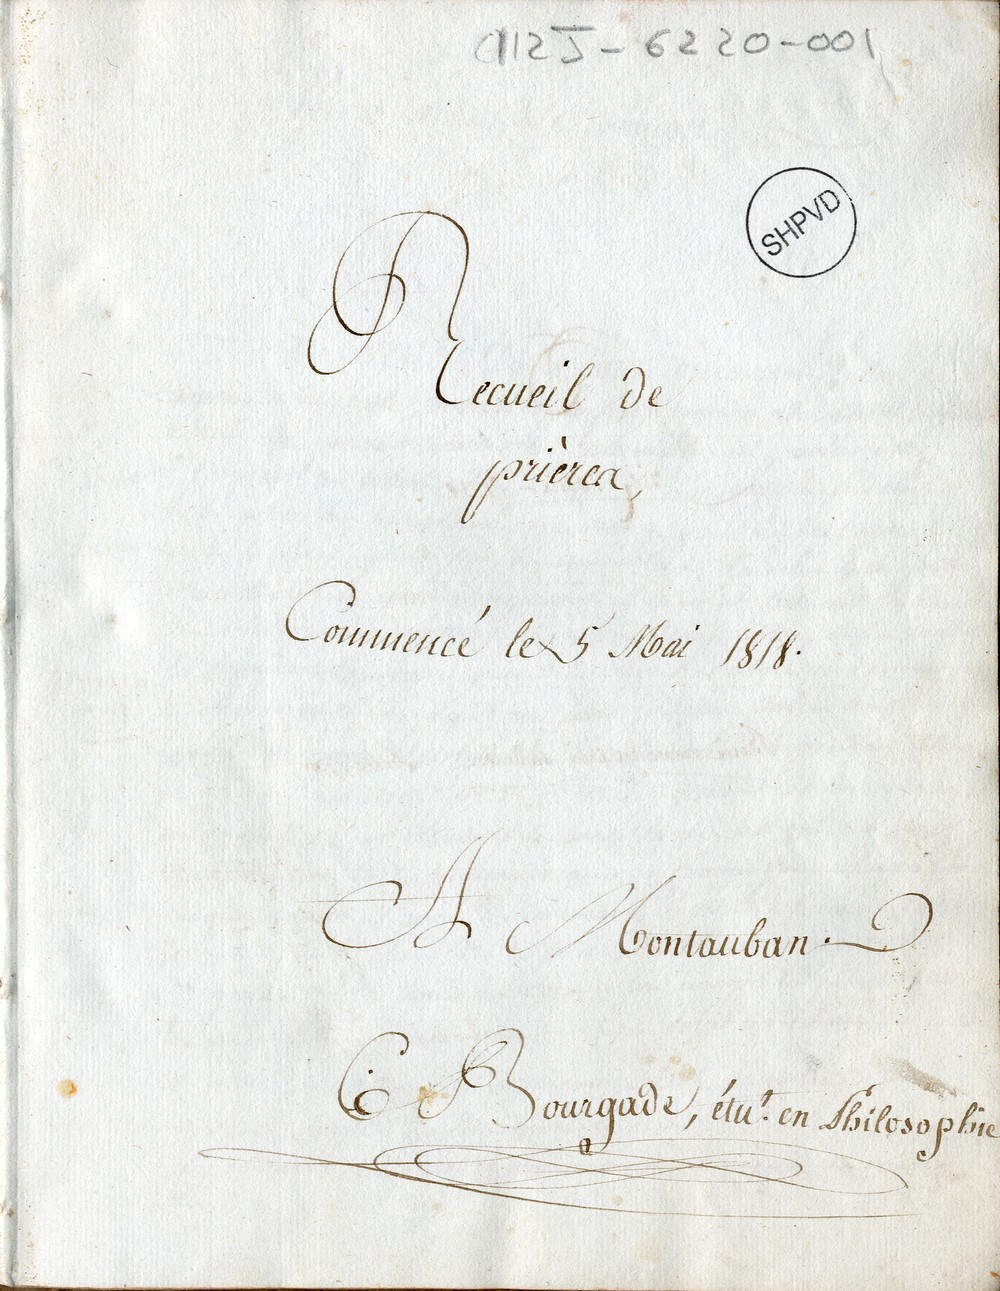 112J-6220-001
SHPVD
Recueil de
prières,
Commencé le 5 Mai 1818.
A Montauban.
C. Bourgade, étu.t en Philosophie